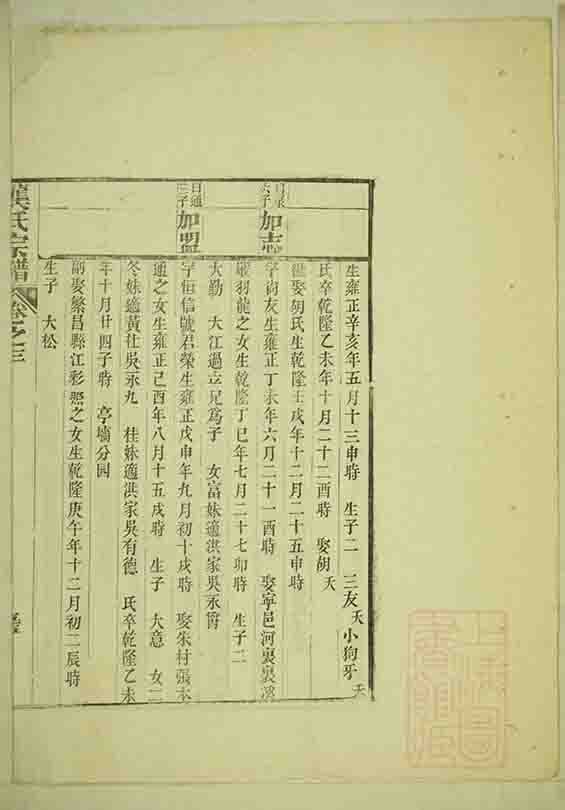 生雍正辛亥年五月十三申時 生子二 三友夭 小狗牙夭
氏卒乾隆乙未年十月二十二酉時 娶胡夭
娶胡氏生乾隆壬戌年十二月二十五申時
子 加志
字 友生雍正丁未年六月二十一酉時 娶寧邑河裏裏溪
羽龍之女生乾隆丁巳年七月二十七卯時 生子二
大勒 大江過立兄為子 女富妹適洪家吳永
日通三子 加盟
字恒信號君榮生雍正戊申年九月初十戌時 娶朱村張本
通之女生雍正己酉年八月十五戌時 生子 大意 女二
冬妹適黃社吳永九 桂妹適洪家吳有德 氏卒乾隆乙未
年十月廿四子時 亭墈分园
副娶繁昌縣江彩熙之女生乾隆庚午年十二月初二辰時
生子 大松
氏宗譜 卷之三